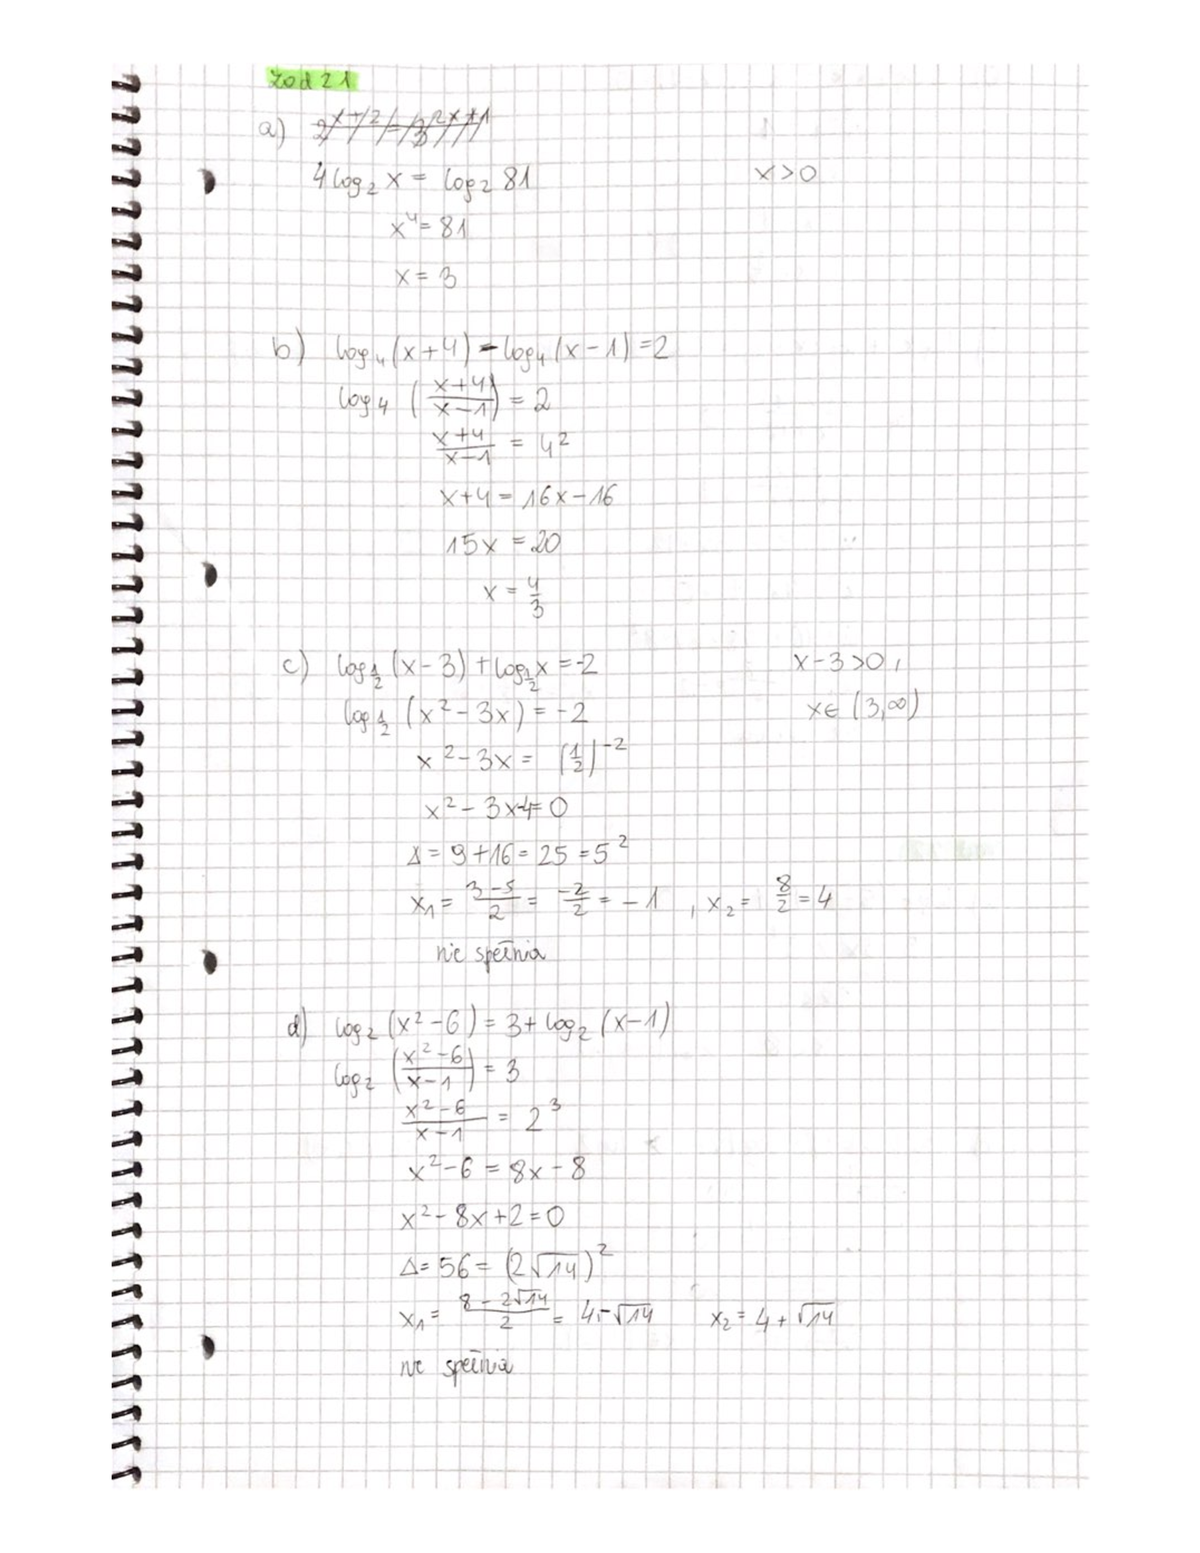 zad 21
a) 2^(x+2) = 3^(2x+1)
4 log₂ x = log₂ 81 x>0
x⁴ = 81
x = 3
b) log₄ (x+4) - log₄ (x-1) = 2
log₄ ((x+4)/(x-1)) = 2
(x+4)/(x-1) = 4²
x+4 = 16x-16
15x = 20
x = 4/3
c) log_(1/2) (x-3) + log_(1/2) x = -2 x-3>0,
log_(1/2) (x²-3x) = -2 x∈ (3,∞)
x²-3x = (1/2)⁻²
x²-3x-4=0
Δ = 9+16 = 25 = 5²
x₁ = (3-5)/2 = -2/2 = -1 , x₂ = 8/2 = 4
nie spełnia
d) log₂ (x²-6) = 3 + log₂ (x-1)
log₂ ((x²-6)/(x-1)) = 3
(x²-6)/(x-1) = 2³
x²-6 = 8x-8
x²-8x+2=0
Δ= 56 = (2√14)²
x₁ = (8-2√14)/2 = 4-√14 x₂ = 4+√14
nie spełnia